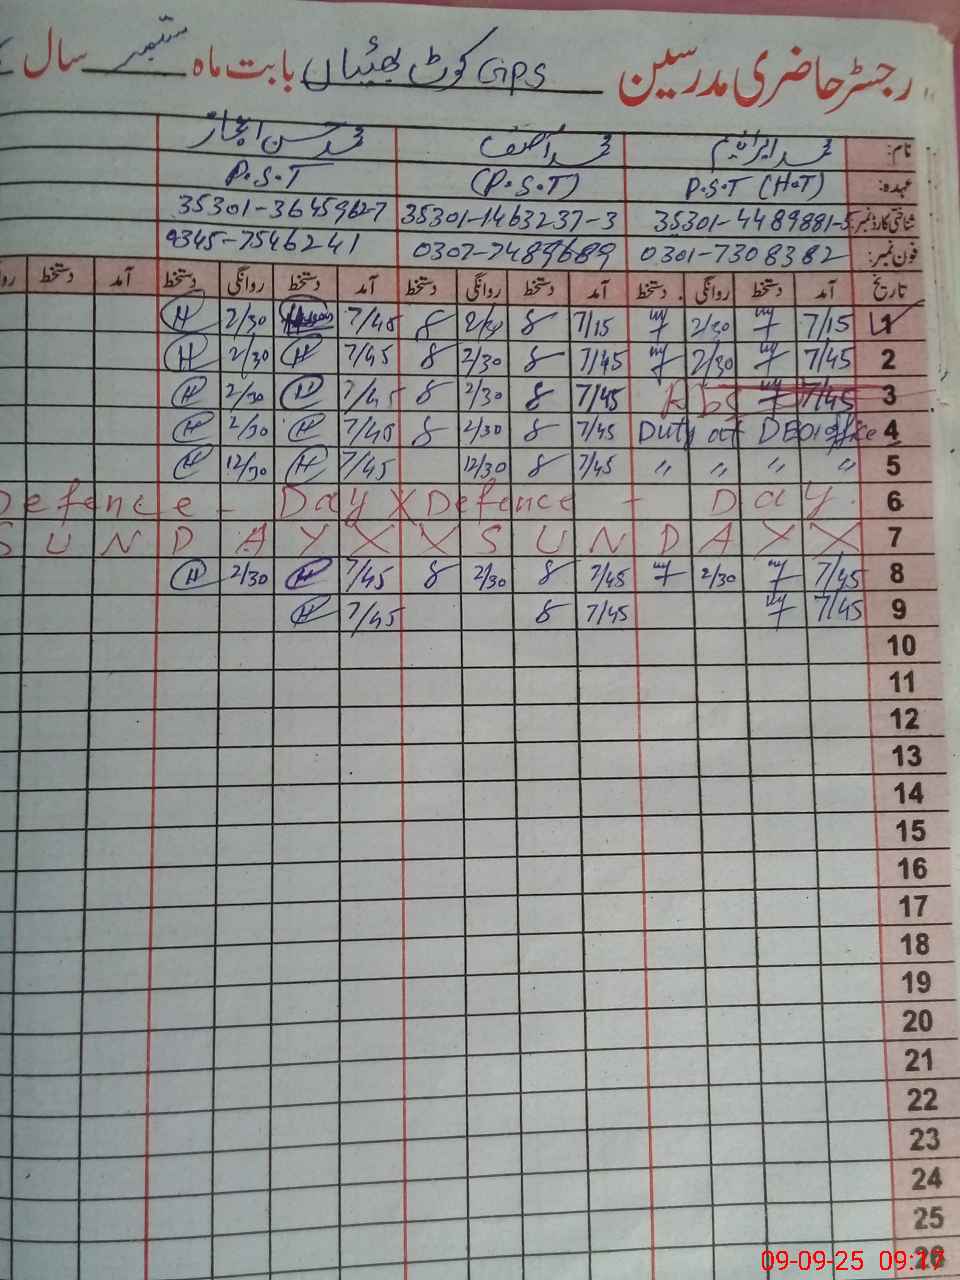 رجسٹر حاضری مدرسین GPS کوٹ بھٹیاں بابت ماہ ستمبر سال
نام: محمد ابراہیم محمد آصف محمد حسن اعجاز
عہدہ: P.S.T (H.T) (P.S.T) P.S.T
شناختی کارڈ نمبر: 35301-4489881-5 35301-1463237-3 35301-3645962-7
فون نمبر: 0301-7308382 0307-7489689 0345-7546241
تاریخ آمد دستخط روانگی دستخط آمد دستخط روانگی دستخط آمد دستخط روانگی دستخط آمد دستخط
1 7/15 2/30 7/15 8 2/30 8 7/45 2/30 H
2 7/45 2/30 7/45 8 2/30 8 7/45 H 2/30 H
3 7/45 7/45 8 2/30 8 7/45 H 2/30 H
4 Duty at DEO office 7/45 8 2/30 8 7/45 H 2/30 H
5 〃 〃 〃 〃 7/45 8 12/30 7/45 H 12/30 H
6 Defence - Day X Defence - Day.
7 S U N D A Y X X S U N D A Y X X
8 7/45 2/30 7/45 8 2/30 8 7/45 H 2/30 H
9 7/45 7/45 8 7/45 H
10
11
12
13
14
15
16
17
18
19
20
21
22
23
24
25
26
09-09-25 09:17